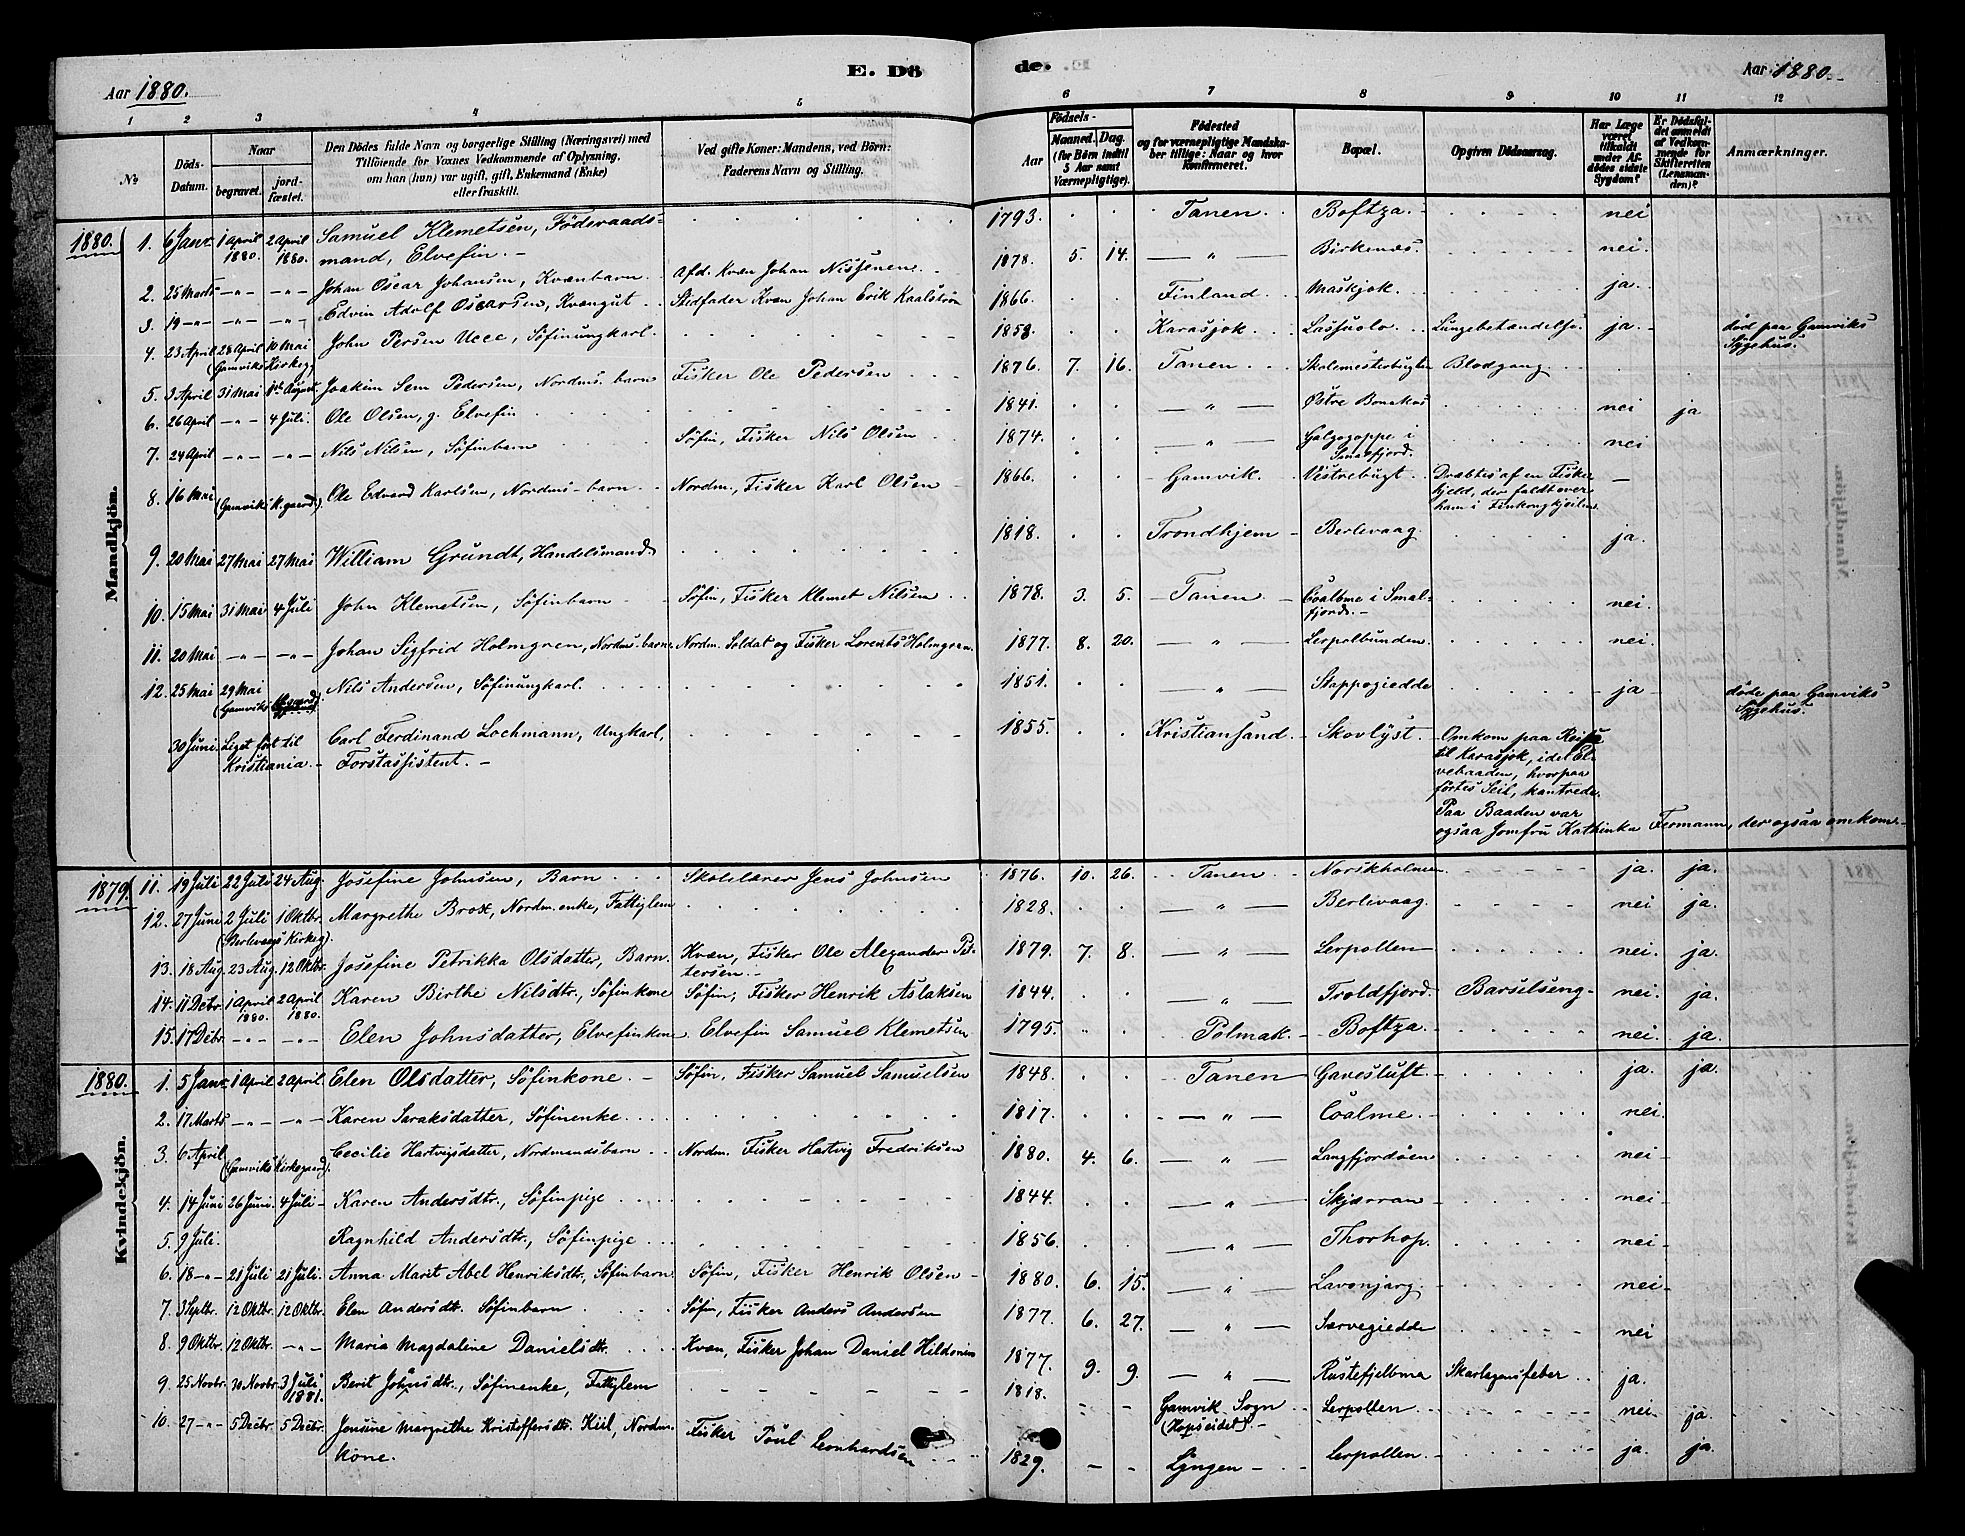 E. Dö de.
Aar 1880. Aar 1880.
1 2 3 4 5 6 7 8 9 10 11 12
№ Döds-Datum. Naar begravet. jordfæstet. Den Dödes fulde Navn og borgerlige Stilling (Næringsvei) med Tilföiende for Voxnes Vedkommende af Oplysning, om han (hun) var ugift, gift, Enkemand (Enke) eller fraskilt. Ved gifte Koner: Mandens, ved Börn: Faderens Navn og Stilling. Födsels- Aar Maaned. Dag. (for Börn indtil 5 Aar samt Værnepligtige). Födested og for værnepligtige Mandskaber tillige: Naar og hvor Konfirmeret. Bopæl. Opgiven Dödsaarsag. Har Læge været tilkaldt under Afdödes sidste Sygdom? Er Dödsfaldet anmeldt af Vedkommende for Skifteretten (Lensmanden)? Anmærkninger.
Mandkjön.
1880. 1. 6 Janr. 1 April 1880. 2 April 1880. Samuel Klemetsen, Föderaadsmand, Elvefin. 1793. Tanen Boftza. nei
2. 25 Marts -"- -"- Johan Oscar Johansen, Kvænbarn. Afd. Kvæn Johan Nissenen 1878. 5. 14. " Birkenæs. nei.
3. 19 -"- -"- -"- Edvin Adolf Oscarsen, Kvængut Stedfader Kvæn Johan Erik Kaalström 1866. Finland. Maskjok. ja.
4. 23 April 28 April 10 Mai (Gamviks Kirkeg.) John Persen Ucce, Söfinungkarl. 1853. Karasjok. Lungebetændelse. ja. död paa Gamviks Sygehus.
5. 3 April 31 Mai Joakim Sem Pedersen, Nordms. barn Fisker Ole Pedersen 1876. 7. 16. Tanen Skolemesterbugten Blodgang
6. 26 April -"- 4 Juli. Ole Olsen, g. Elvefin 1841. " Östre Bonakas nei ja
7. 24 April -"- -"- Nils Nilsen, Söfinbarn Söfin, Fisker Nils Olsen 1874. " i Smalfjord. nei
8. 16 Mai (Gamviks K.gaard.) Ole Edvard Karlsen, Nordms-barn Nordm., Fisker Karl Olsen 1866. Gamvik. Vestrebugt. Dræbtes af en Fiskehjeld, der faldt over ham i Finkongkjeilen —
9. 20 Mai 27 Mai 27 Mai William Grundt, Handelsmand. 1818. Trondhjem Berlevaag ja.
10. 15 Mai 31 Mai 4 Juli John Klemetsen, Söfinbarn Söfin, Fisker Klemet Nilsen 1878. 3. 5. Tanen Coalbme i Smalfjord. nei.
11. 20 Mai -"- -"- Johan Sigfrid Holmgren, Nordms. barn Nordm. Soldat og Fisker Lorents Holmgren. 1877. 8. 20. " Lerpolbunden. nei.
12. 25 Mai 29 Mai (Gamviks Nils Andersen, Söfinungkarl. 1851. " Stappogiedde ja döde paa Gamviks Sygehus.
30 Juni Liget fört til Kristiania. Carl Ferdinand Lochmann, Ungkarl, Forstassistent. 1855. Kristiansand. Skovlyst. Omkom paa Reise til Karasjok, idet Elvebaaden, hvorpaa förtes Seil, kantrede. Paa Baaden var ogsaa Jomfru Kathinka Fermann, der ogsaa omkom.
Kvindekjön.
1879. 11. 19 Juli 22 Juli 24 Aug. Josefine Johnsen, Barn Skolelærer Jens Johnsen 1876. 10. 26. Tanen Norskholmen ja. ja.
12. 27 Juni 2 Juli 1 Oktbr. (Berlevaags Kirkeg). Margrethe Brox, Nordm. enke, Fattiglem 1828. " Berlevaag nei ja.
13. 18 Aug. 23 Aug. 12 Oktbr. Josefine Petrikka Olsdatter, Barn. Kvæn, Fisker Ole Alexander Petersen. 1879. 7. 8. " Lerpollen nei. ja.
14. 11 Decbr. 1 April 1880. 2 April 1880. Karen Birthe Nilsdtr., Söfinkone Söfin, Fisker Henrik Aslaksen 1844. " Troldfjord. Barselseng nei. ja.
15. 17 Debr. -"- -"- Elen Johnsdatter, Elvefinkone. Elvefin Samuel Klemetsen 1795. Polmak. Boftza. nei. ja.
1880. 1. 5 Janr. 1 April 2 April Elen Olsdatter, Söfinkone. Söfin, Fisker Samuel Samuelsen 1848. Tanen Gavesluft. ja. ja.
2. 17 Marts -"- -"- Karen Saraksdatter, Söfinenke. 1817. " Coalme. nei.
3. 6 April (Gamviks Kirkegaard). Cecilie Hartvigsdatter, Nordmandsbarn Nordm. Fisker Hartvig Fredriksen 1880. 4. 6. " Langfjordöen nei
4. 14 Juni 26 Juni 4 Juli Karen Andersdtr., Söfinpige 1844. " Skjærran nei
5. 9 Juli. Ragnhild Andersdtr., Söfinpige 1856. " Thorhop. nei
6. 18 -"- 21 Juli 21 Juli. Anna Marit Abel Henriksdtr., Söfinbarn Söfin, Fisker Henrik Olsen 1880. 6. 15. " Lavonjarg nei
7. 3 Septbr. 12 Oktbr. 12 Oktbr. Elen Andersdtr. Söfinbarn Söfin, Fisker Anders Andersen 1877. 6. 27. " Sarvegiedde nei
8. 9 Oktbr. 12 Oktbr. -"- Maria Magdaline Danielsdtr. Kvæn, Fisker Johan Daniel Hildonen 1877. 9. 9. " Rustefjelbma Skarlagensfeber ja.
9. 25 Novbr. 30 Novbr. 3 Juli 1881. Berit Johnsdtr., Söfinenke, Fattiglem 1818. Gamvik Sogn (Hopseidet). Lerpollen nei. ja.
10. 27 -"- 5 Decbr. 5 Decbr. Jonine Margrethe Kristoffersdtr. Kiil, Nordms. kone. Fisker Poul Leonhardsen 1829. Lyngen Lerpollen. ja. ja.